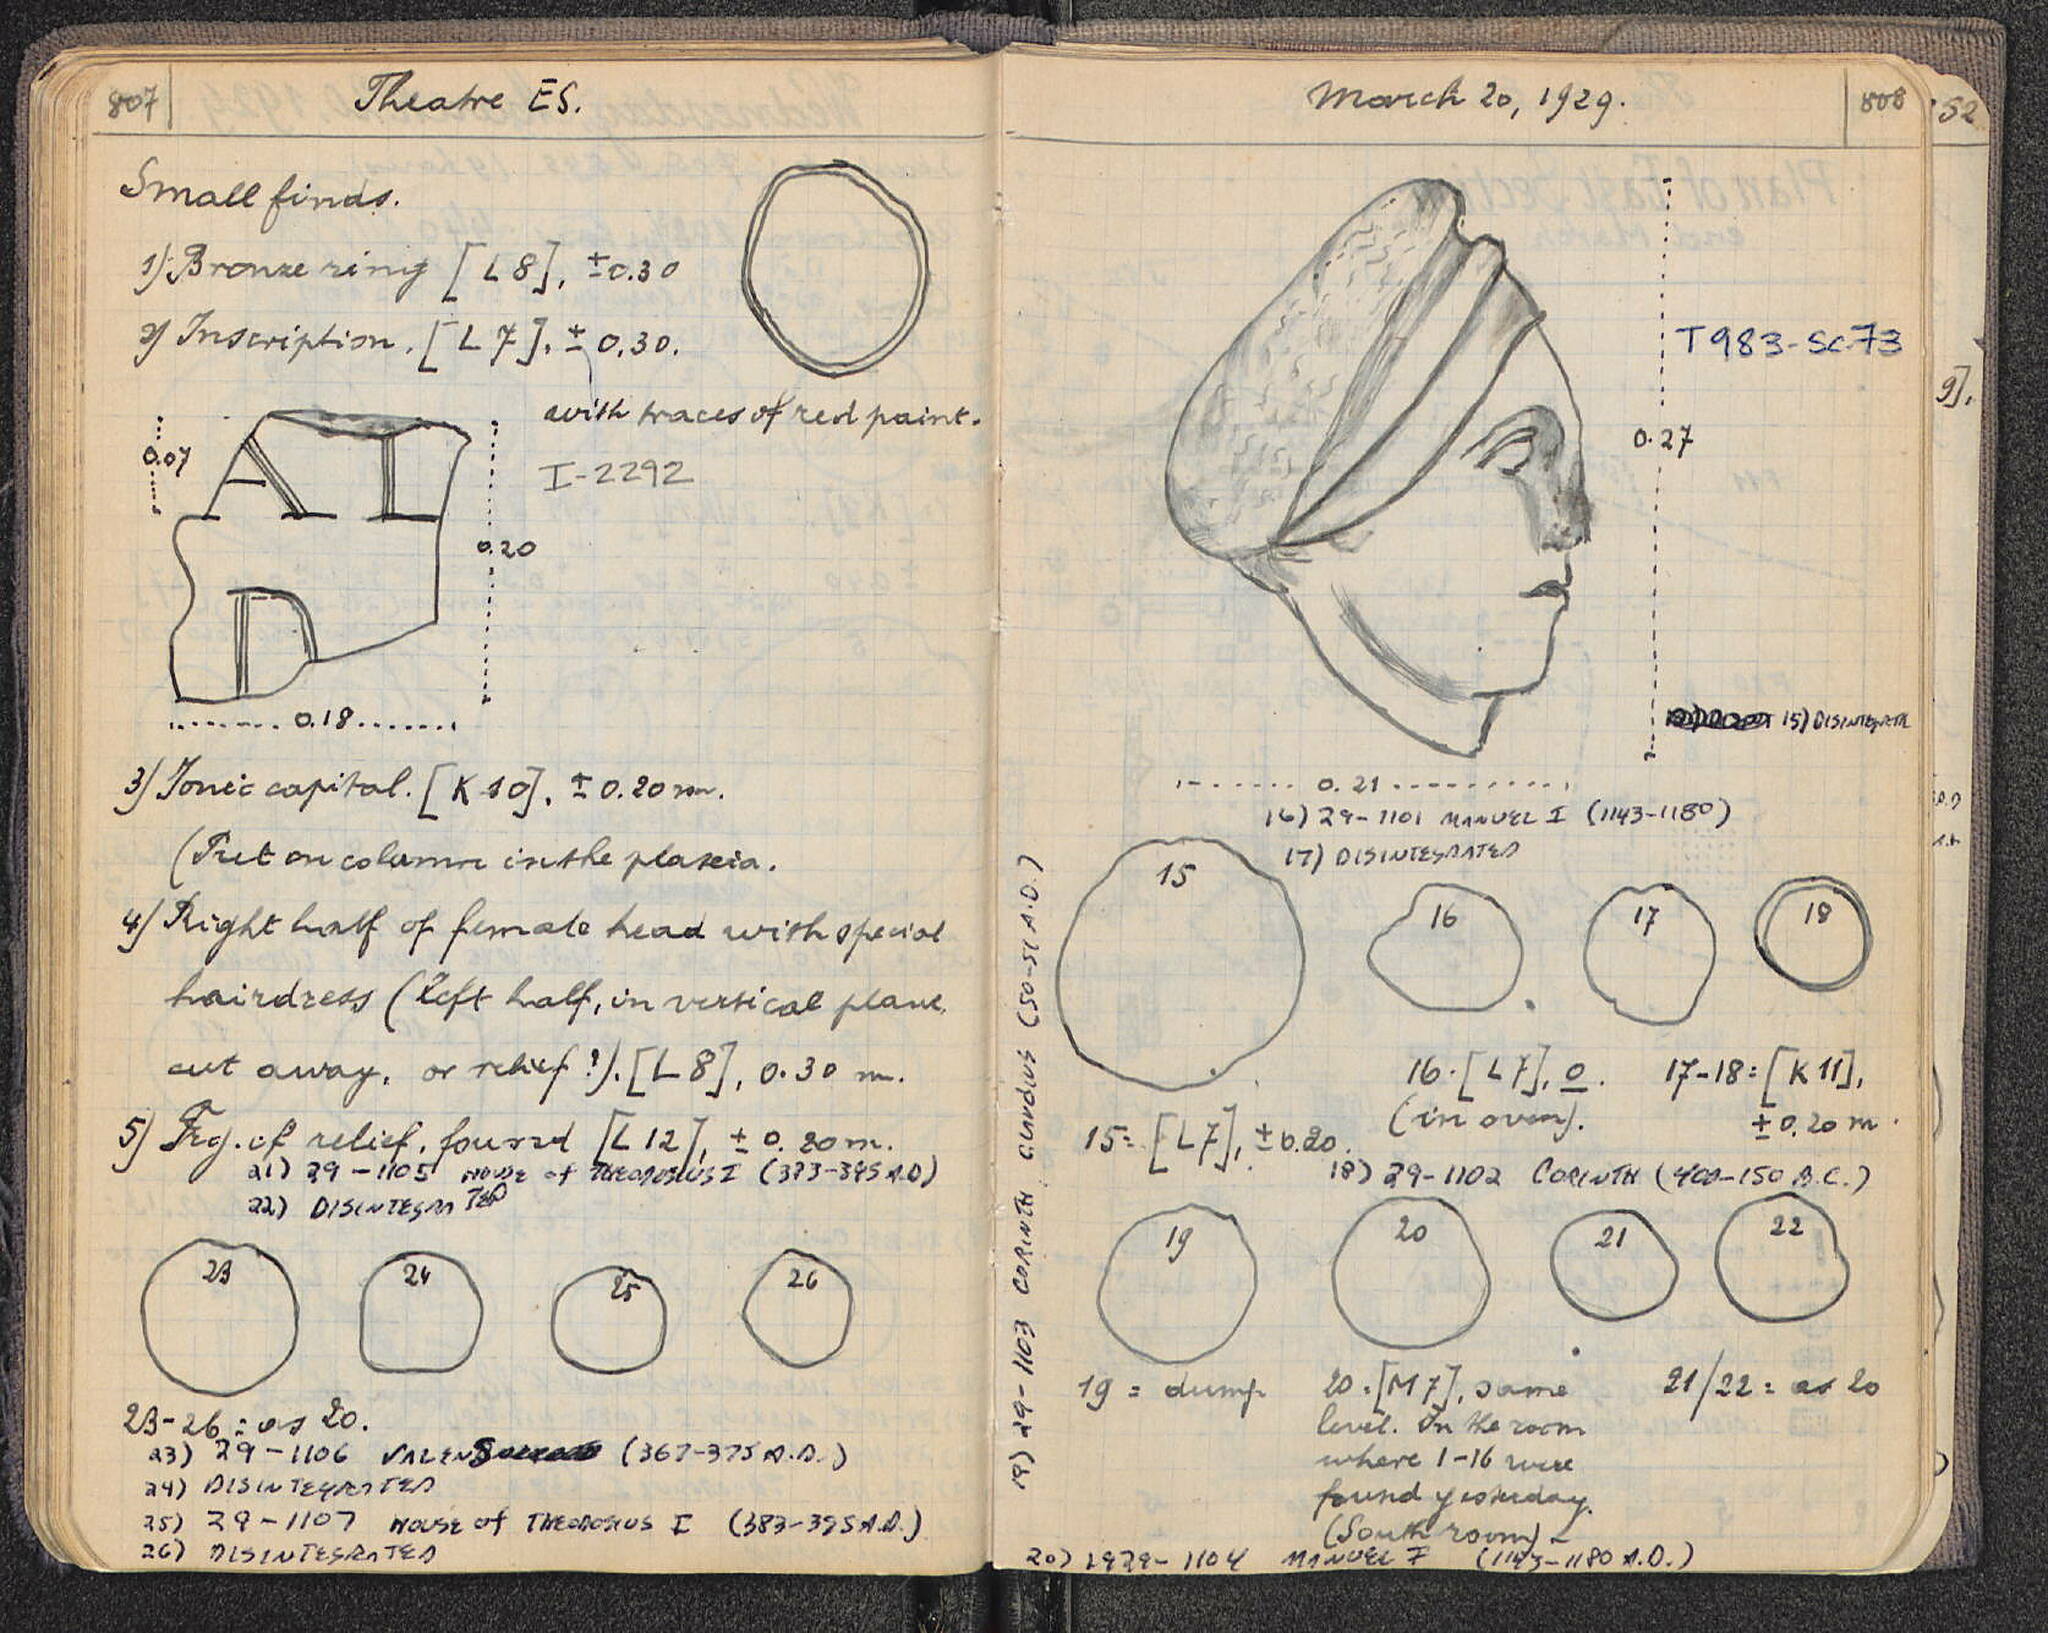 807
Theatre ES.
Small finds.
1) Bronze ring [L 8], ± 0.30
2) Inscription. [L 7], ± 0.30.
with traces of red paint.
I-2292
0.07
0.20
0.18
3) Ionic capital. [K 10], ± 0.20 m.
(Put on column in the plateia.
4) Right half of female head with special
hairdress (left half, in vertical plane,
cut away, or relief?). [L 8], 0.30 m.
5) Frg. of relief, found [L 12], ± 0.20 m.
21) 29-1105 HOUSE of THEODOSIUS I (383-395 A.D)
22) DISINTEGRATED
23
24
25
26
23-26 = as 20.
23) 29-1106 VALENS (367-375 A.D.)
24) DISINTEGRATED
25) 29-1107 HOUSE of THEODOSIUS I (383-395 A.D.)
26) DISINTEGRATED
March 20, 1929.
808
T983-Sc73
0.27
15) DISINTEGRATE
0.21
16) 29-1101 MANUEL I (1143-1180)
17) DISINTEGRATED
15
16
17
18
16 = [L 7], 0.
(in oven).
17-18 = [K 11],
± 0.20 m.
15 = [L 7], ± 0.20.
18) 29-1102 CORINTH (400-150 B.C.)
19) 29-1103 CORINTH CLAUDIUS (50-51 A.D.)
19
20
21
22
19 = dump
20 = [M 7], same
level. In the room
where 1-16 were
found yesterday.
(South room)
21/22 = as 20
20) 1929-1104 MANUEL I (1143-1180 A.D.)
52
9].